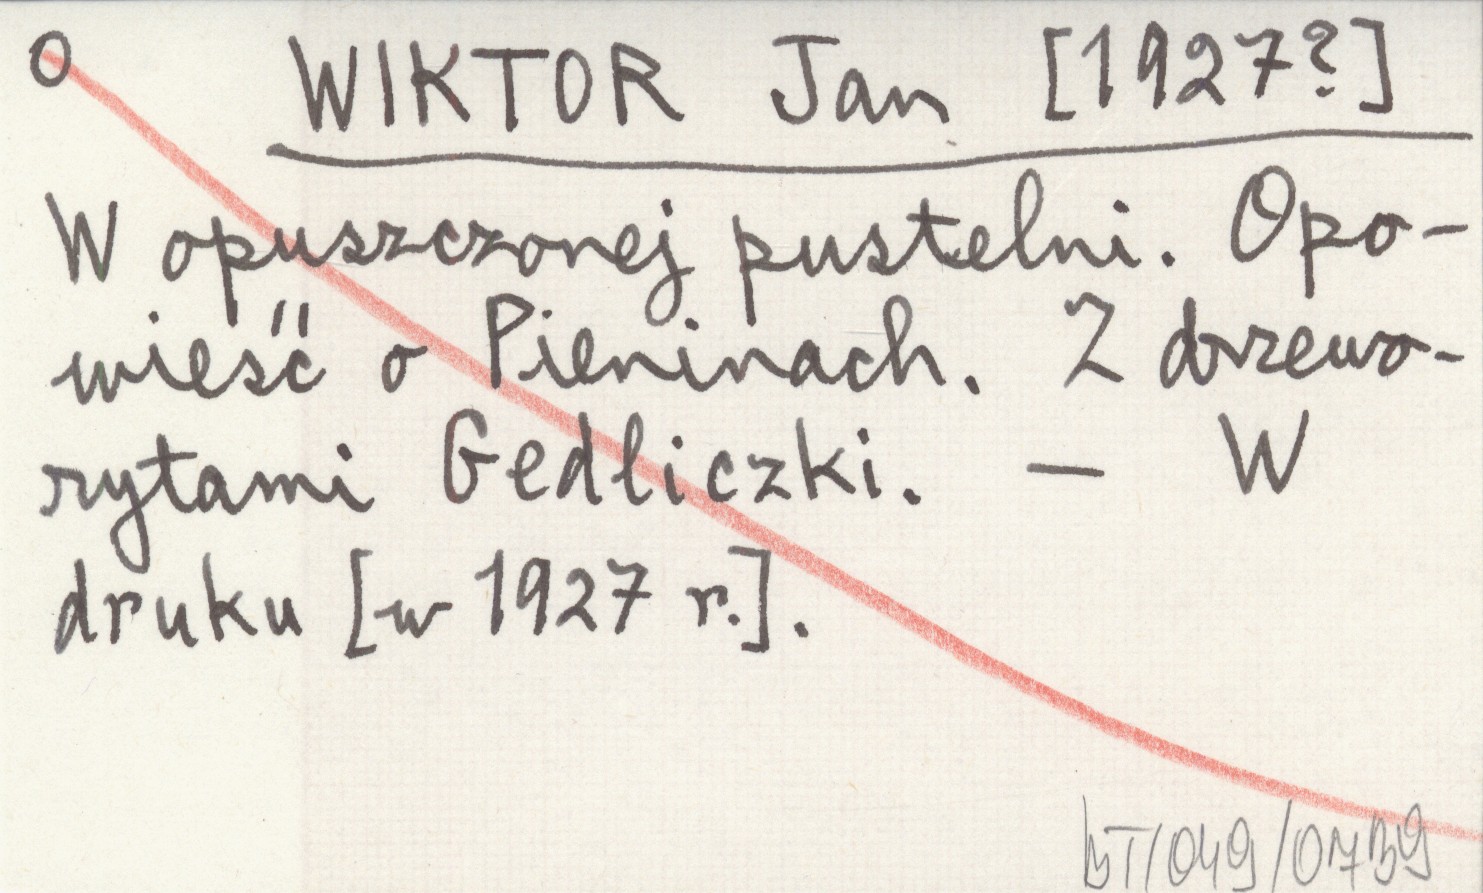 O WIKTOR Jan [1927?]
W opuszczonej pustelni. Opo-
wieść o Pieninach. Z drzewo-
rytami Gedliczki. — W
druku [w 1927 r.].
BT/049/0739